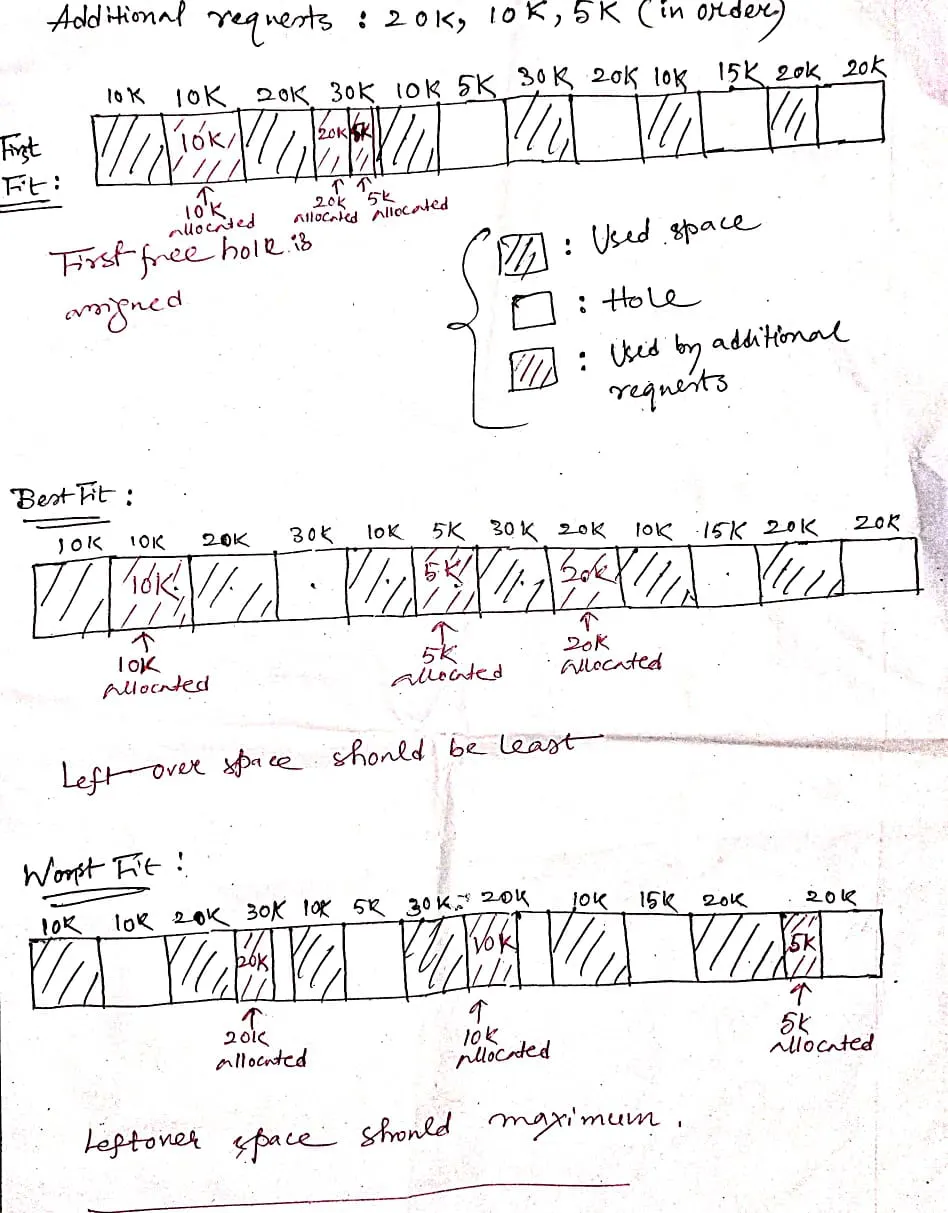 Additional requests : 20K, 10K, 5K (in order)
10K 10K 20K 30K 10K 5K 30K 20K 10K 15K 20K 20K
First
Fit :
10K 20K 5K
10K allocated
20K allocated
5K allocated
First free hole is
assigned
: Used space
: Hole
: Used by additional
requests
Best Fit :
10K 10K 20K 30K 10K 5K 30K 20K 10K 15K 20K 20K
10K 5K 20K
10K allocated
5K allocated
20K allocated
Left over space should be least
Worst Fit :
10K 10K 20K 30K 10K 5K 30K 20K 10K 15K 20K 20K
20K 10K 5K
20K allocated
10K allocated
5K allocated
Leftover space should maximum.